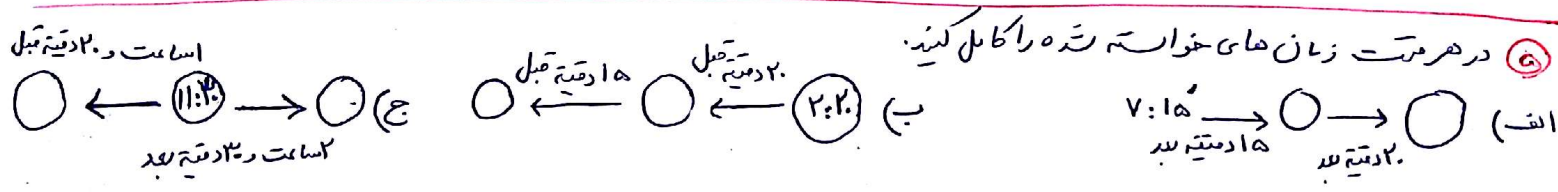 ۵ در هر قسمت زمان های خواسته شده را کامل کنید.
الف) ۷:۱۵ ۱۵ دقیقه بعد ۲۰ دقیقه بعد
ب) ۲:۲۰ ۲۰ دقیقه قبل ۱۵ دقیقه قبل
ج) ۱۱:۳۰ ۲ ساعت و ۳۰ دقیقه بعد ۱ ساعت و ۲۰ دقیقه قبل